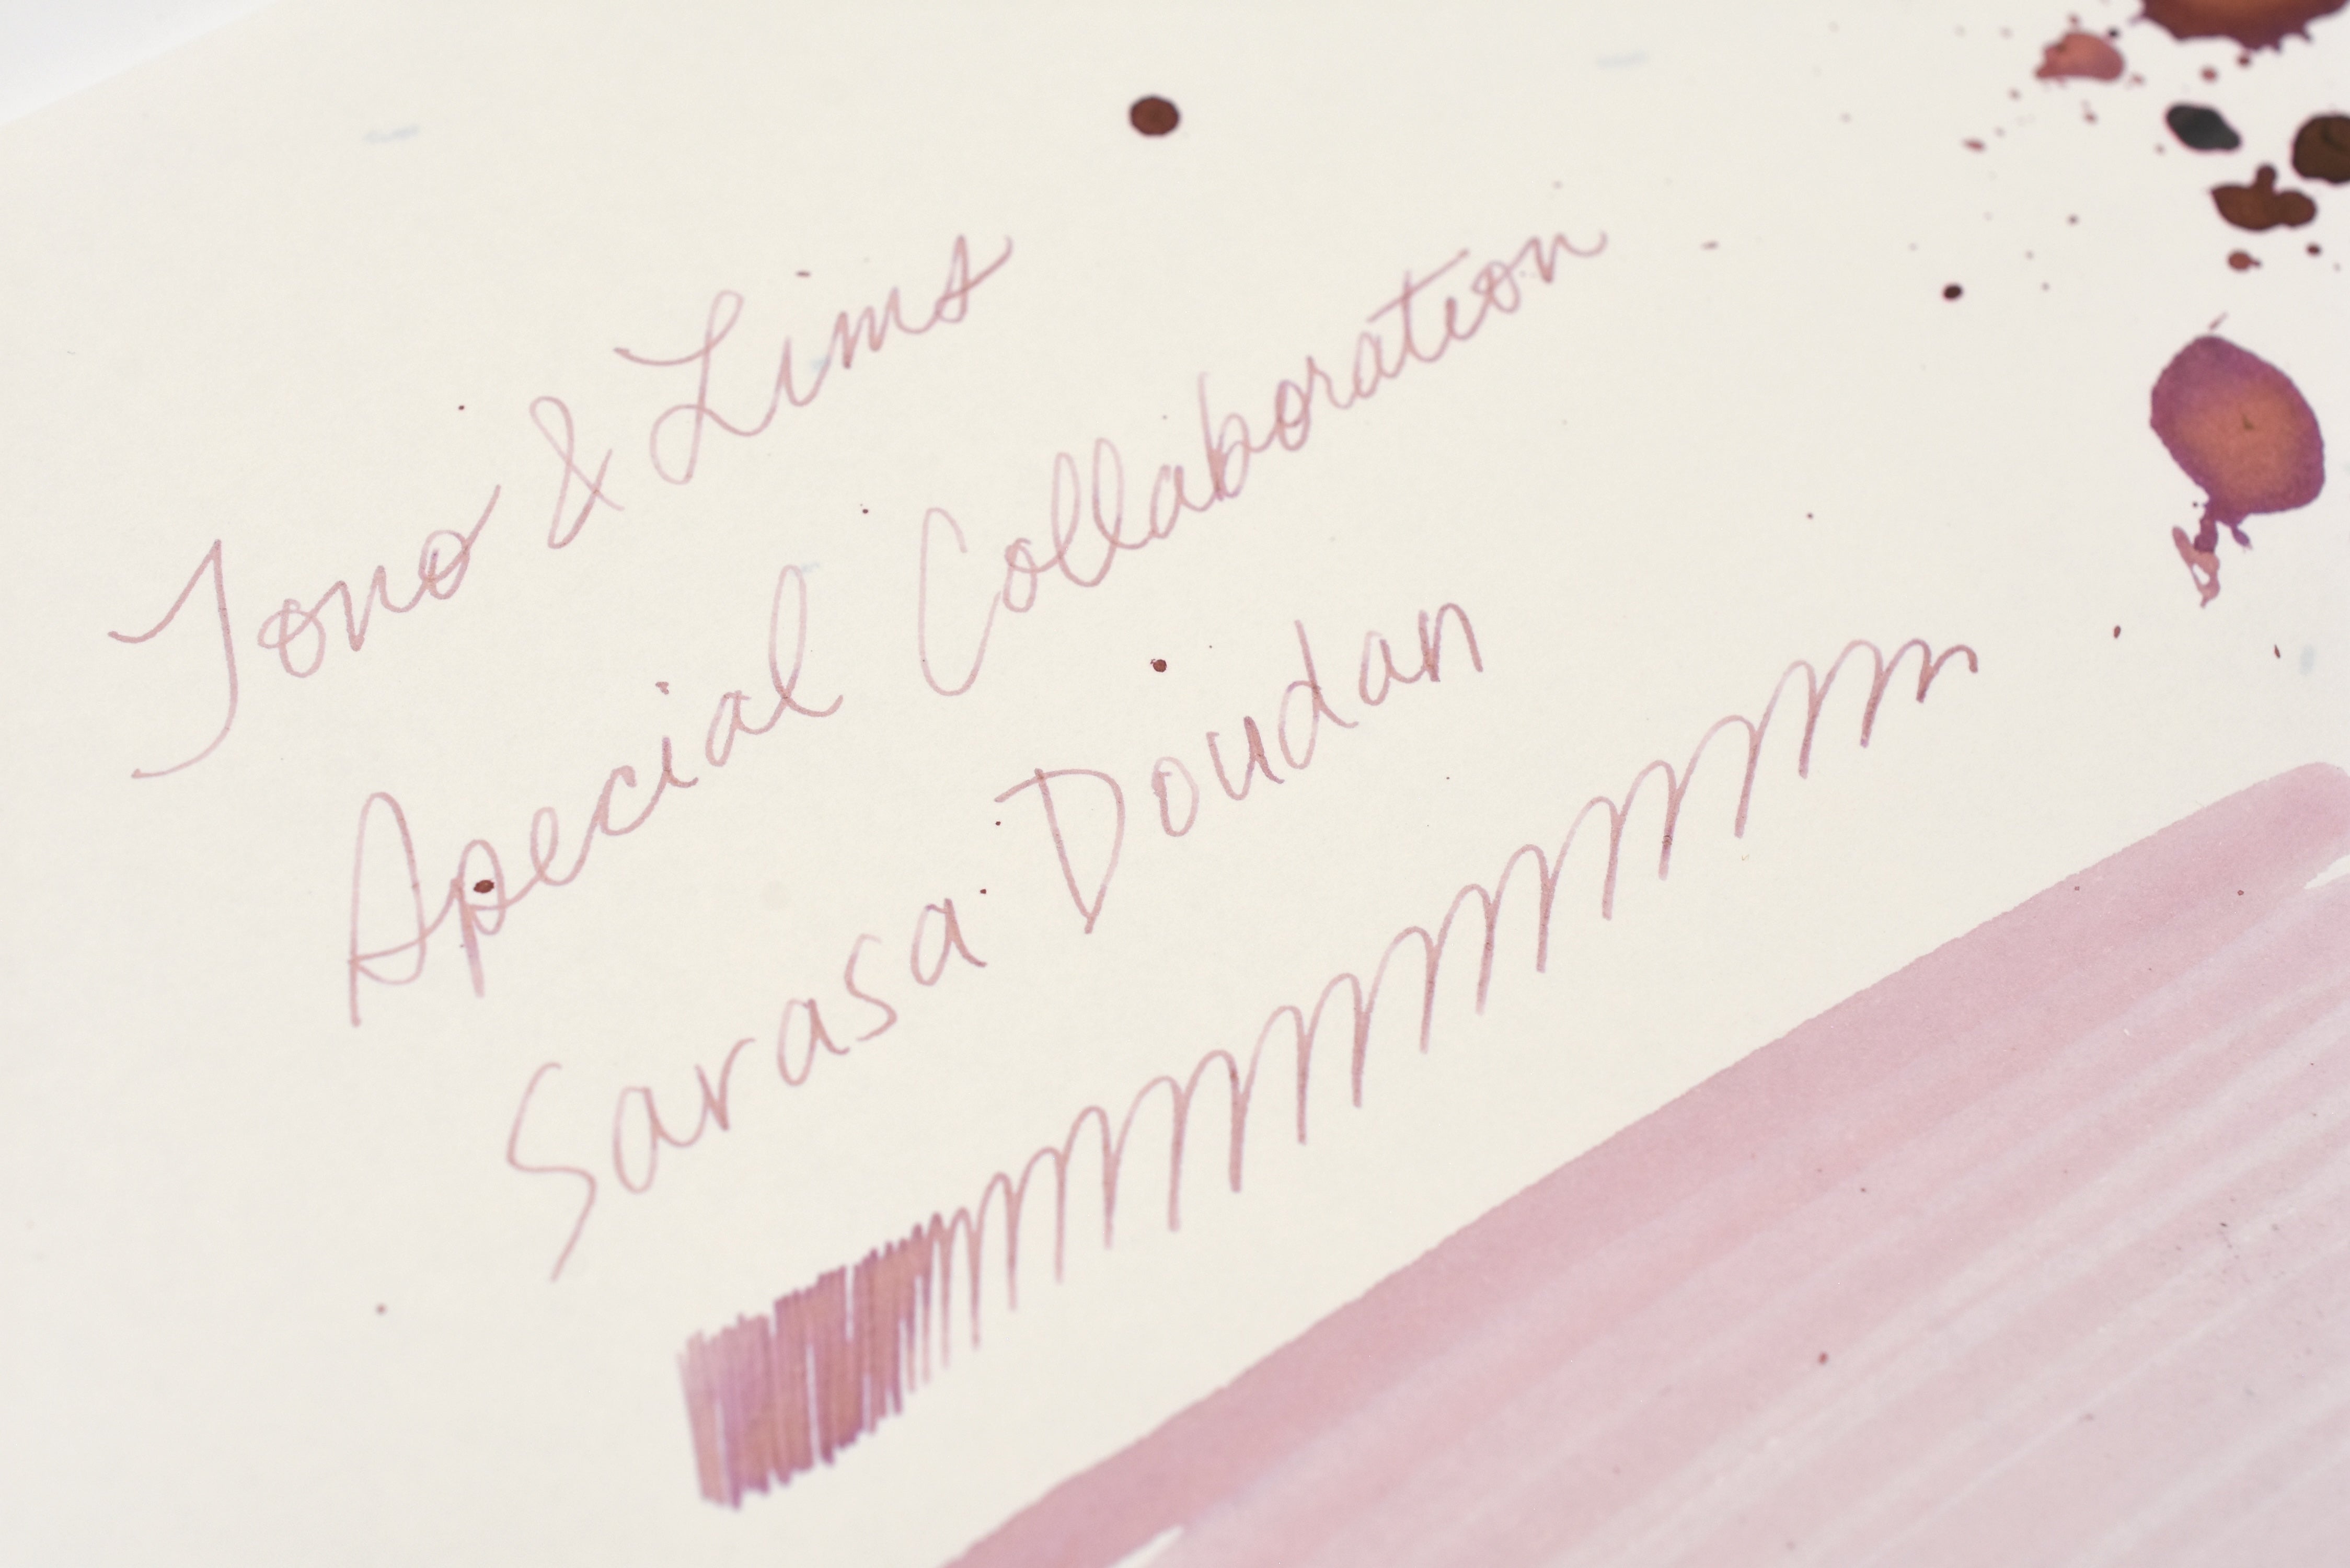 Tono & Lims
Special Collaboration
Sarasa Doudan